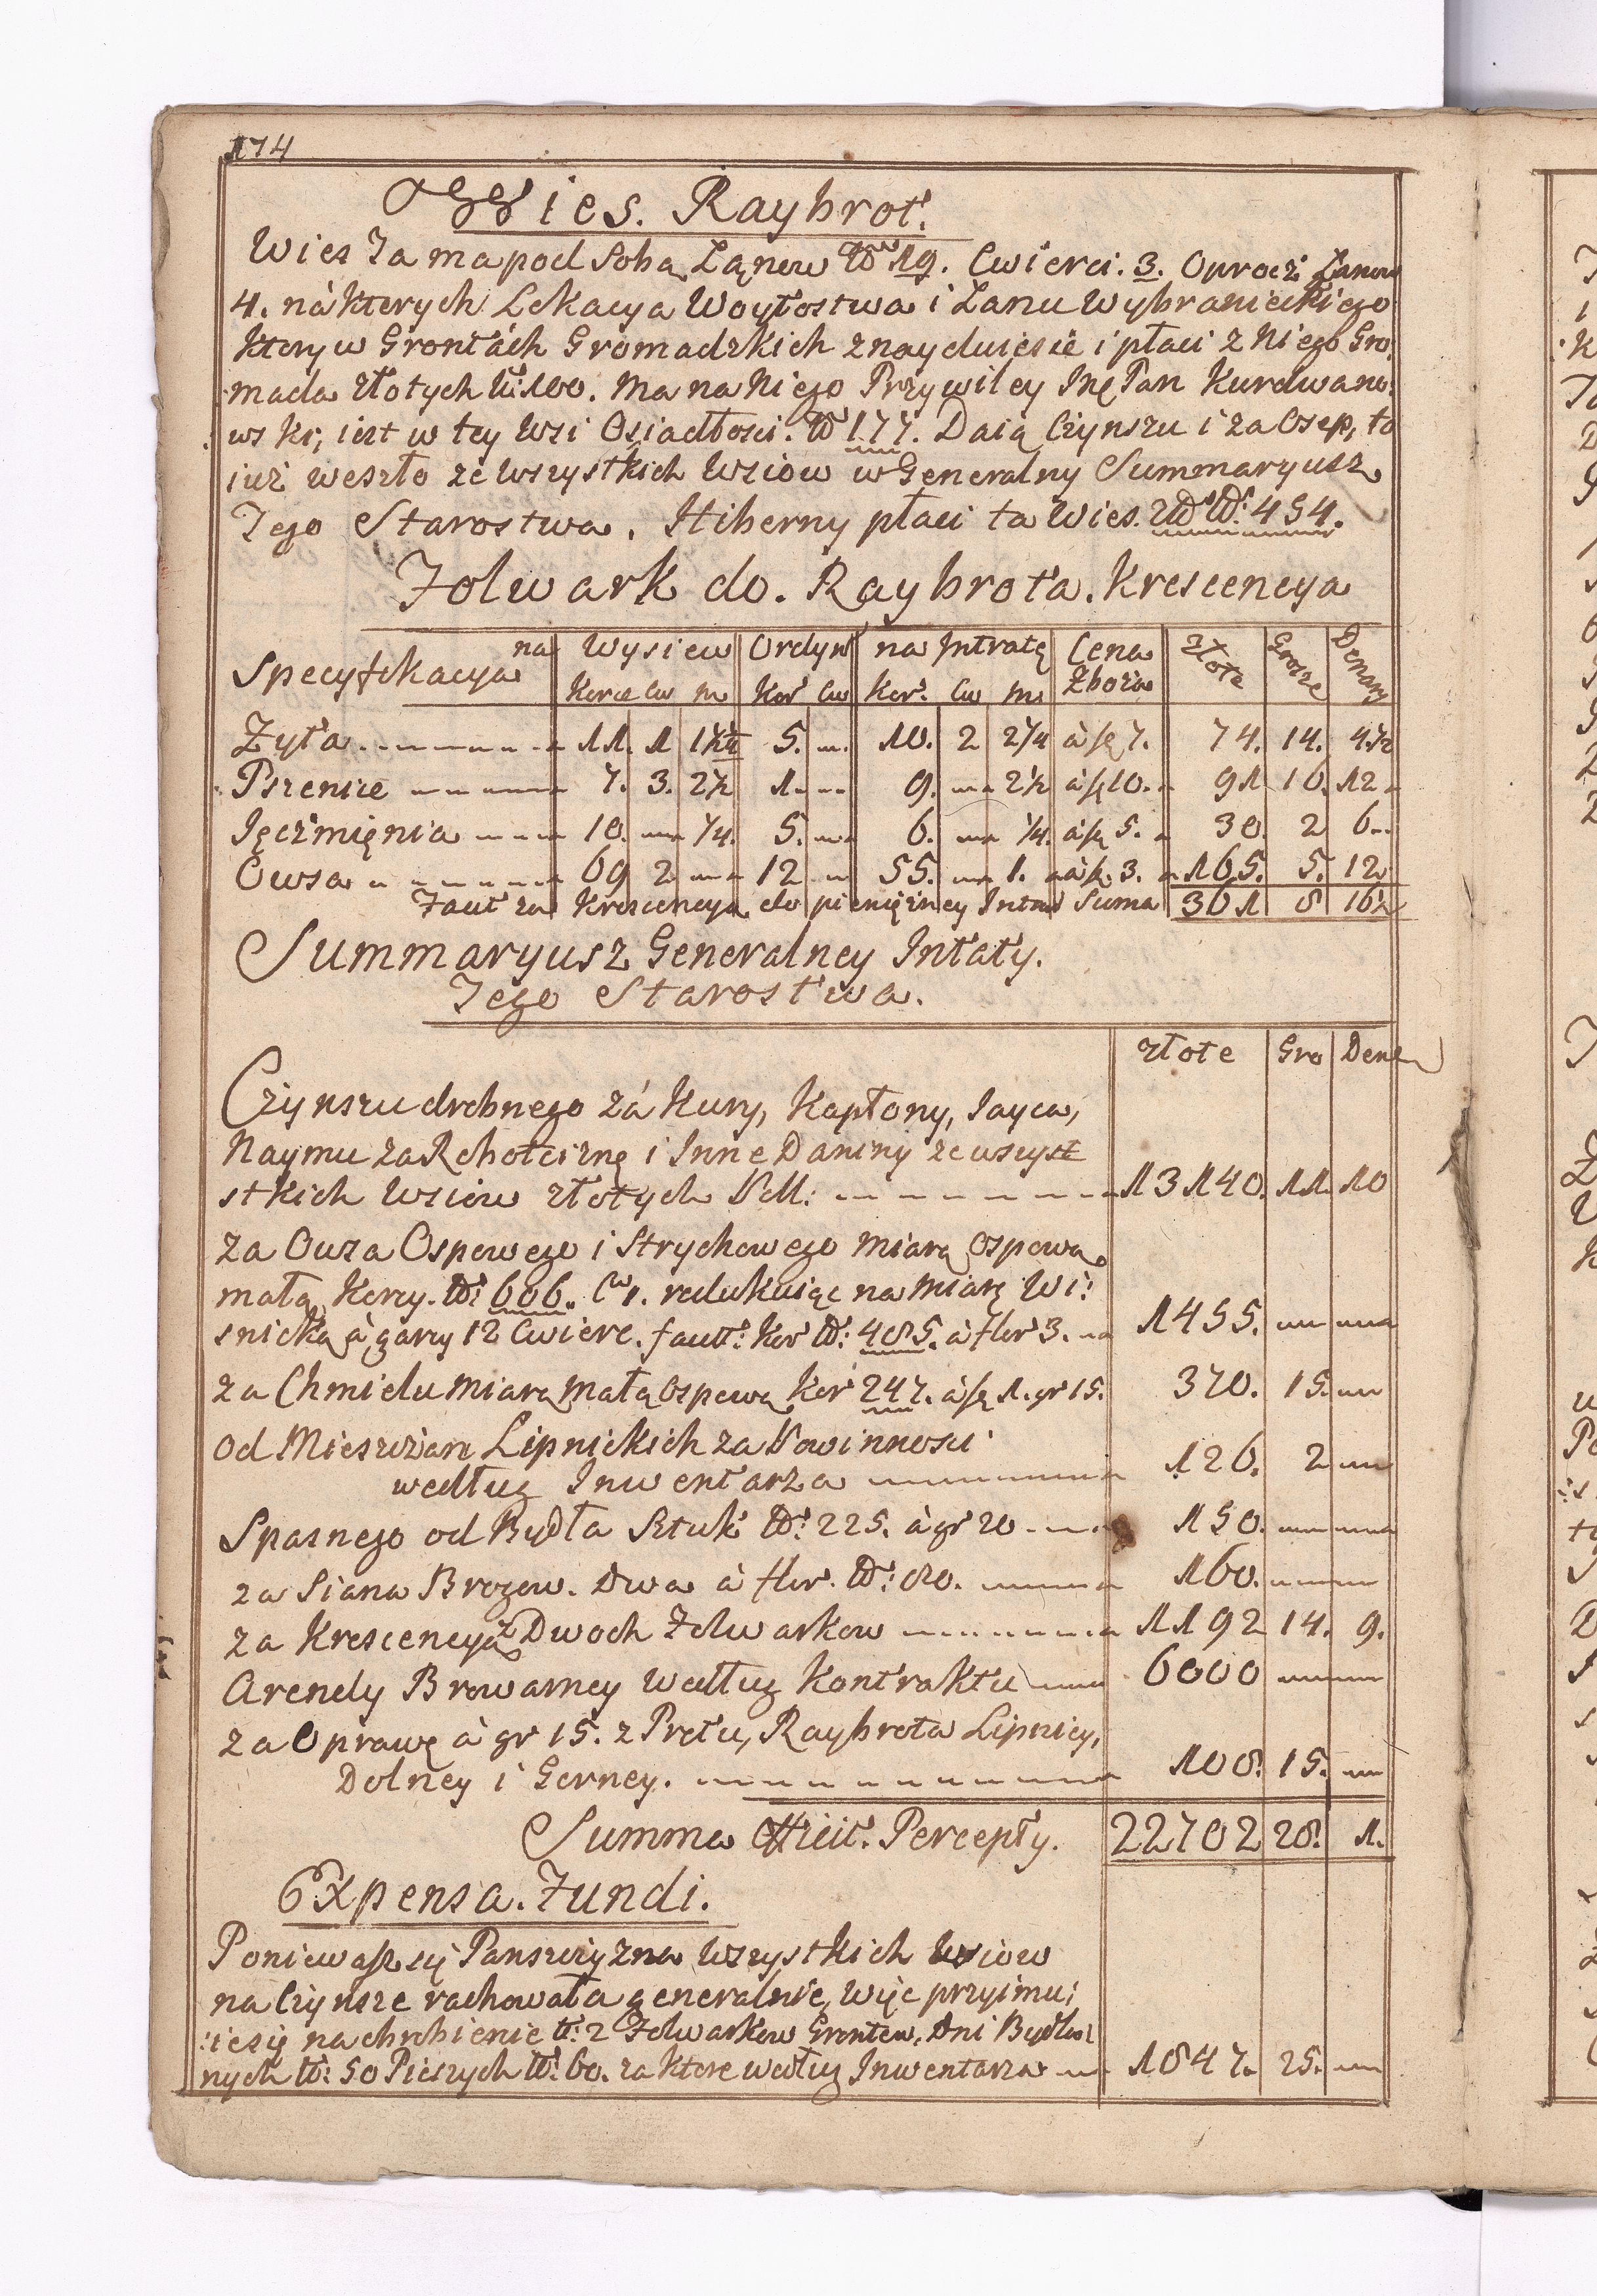 174
Wies. Raybrot.
Wies Ta ma pod Sobą Łąnow No 19. Cwierci. 3. Oprocż Łanow
4. nà ktorych Lokacya Woytostwa i Łanu Wybranieckiego
ktory w Grontách Gromadzkich znayduie sie i płaci z Niego Gro,
mada złotych No 100. Ma na Niego Przywiley Imę Pan Kurdwano,
wski, iest w tey Wsi Osiadłosci. No 177. Daią Czynszu i za Osep, to
iuż weszło ze wszystkich Wsiow w Generalny Summaryusz
Tego Starostwa. Hiberny płaci ta Wies. 454.
Folwark do. Raybrota. Krescencya
Specyfikacya na Wysiew Ordyn na Intratę Cena Zboża Złote Grosze Denary
Korce Cw M Kor Cw Kor. Cw M.
Żyta 11. 1 5. 10. 2 2/4 à fl 7. 74. 14. 4 1/2
Pszenice 7. 3. 2 1/2 1. 9. 2 1/2 à fl 10. 91 16. 12
Jęczmięnia 10. 1/4. 5. 6. 1/4. à fl 5. 30. 2 6
Owsa 69 2 12 55. 1. à fl. 3. 165. 5. 12
Facit za Krescencyą do pienięzney Intra Suma 361 8 16 1/2
Summaryusz Generalney Intaty.
Tego Starostwa.
złote Gro Dena
Czynszu drobnego zá Kury, Kapłony, Jayca,
Naymu za Robociznę i Inne Daniny ze wszyst
stkich Wsiow złotych Poll: 13140. 11. 10
za Owsa Ospowego i Strychowego miarą Ospową
małą Korcy. No 606. Cw 1. redukuiąc na miarę Wi:
snicką à garcy 12 Cwierc. facit: Kor No: 485. à flor 3. 1455.
za Chmielu miarą małą Ospową Kor 247. à fl 1. gr 15. 370. 15.
Od Mieszczan Lipnickich za Powinnosci
według Inwentarza 126. 2
Spasnego od Bydła Sztuk No: 225. à gr 20 150.
za Siana Brogow. Dwa à flor. No: 80. 160.
za Krescencyą z Dwoch Folwarkow 1192 14. 9.
Arendy Browarney według Kontraktu 6000
za Oprawę à gr 15. z Prętu, Raybrota Lipnicy,
Dolney i Gorney. 108. 15.
Summa Percepty. 22702 28. 1.
Expensa. Fundi.
Poniewasz się Panszczyzna Wszystkich Wsiow
na Czynsze rachowała generalnie, więc przyimu,
ie się na obrobienie No: 2 Folwarkow Grontow, Dni Bydło,
nych No: 50 Pieszych No: 60. za ktore według Inwentarza 1847. 25.